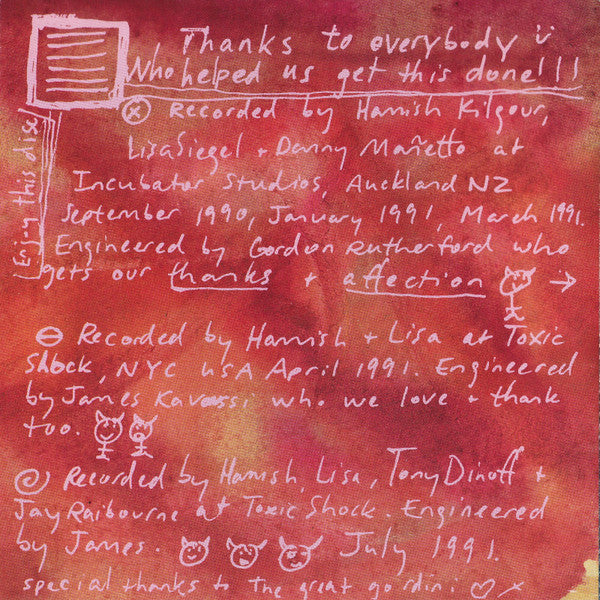 Thanks to everybody
Who helped us get this done!!!
Recorded by Hamish Kilgour,
Lisa Siegel + Danny Mañetto at
Incubator Studios, Auckland NZ
September 1990, January 1991, March 1991.
Engineered by Gordon Rutherford who
gets our thanks + affection →
Enjoy this disc
Recorded by Hamish + Lisa at Toxic
Shock, NYC USA April 1991. Engineered
by James Kavoussi who we love + thank
too.
Recorded by Hamish, Lisa, Tony Dinoff +
Jay Raibourne at Toxic Shock. Engineered
by James. July 1991.
special thanks to the great gordini ♡ x